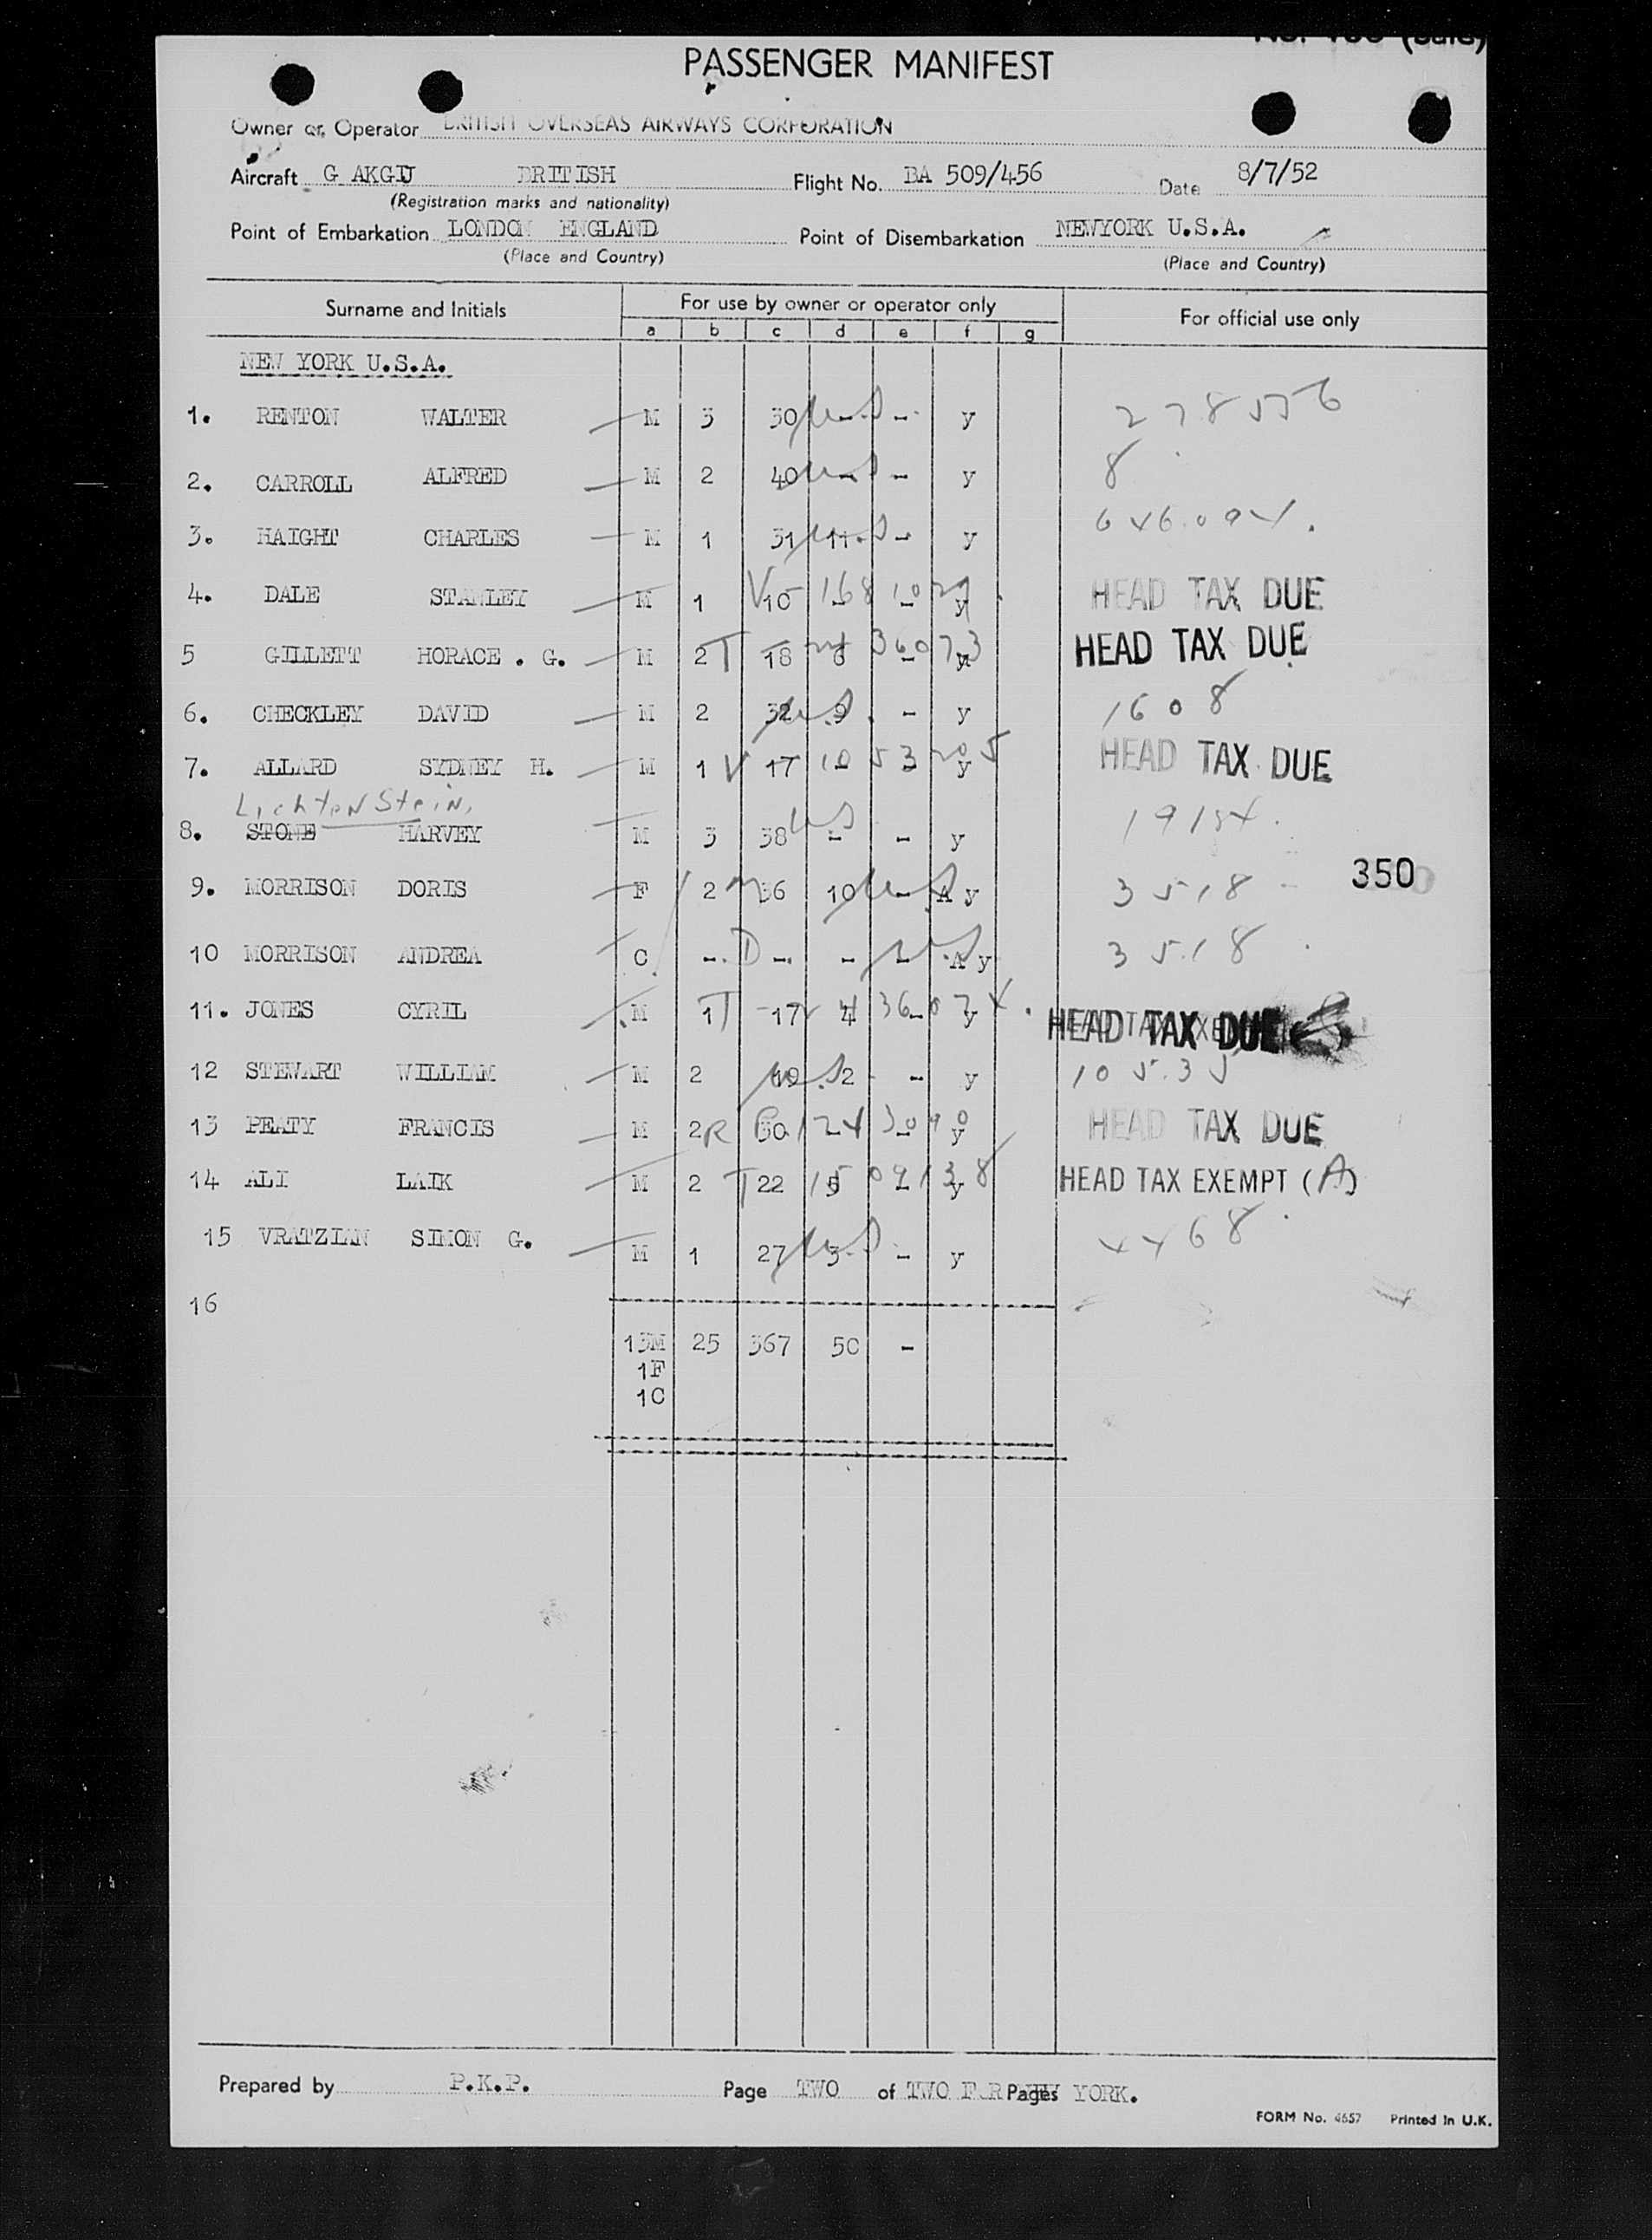 PASSENGER MANIFEST
Owner or Operator BRITISH OVERSEAS AIRWAYS CORPORATION
Aircraft G AKGU BRITISH Flight No. BA 509/456 Date 8/7/52
(Registration marks and nationality)
Point of Embarkation LONDON ENGLAND Point of Disembarkation NEWYORK U.S.A.
(Place and Country) (Place and Country)
Surname and Initials For use by owner or operator only For official use only
a b c d e f g
NEW YORK U.S.A.
1. RENTON WALTER M 3 30 - - y
2. CARROLL ALFRED M 2 40 - - y 8
3. HAIGHT CHARLES M 1 31 11 - y
4. DALE STANLEY M 1 10 - - y HEAD TAX DUE
5 GILLETT HORACE . G. M 2 18 6 - y HEAD TAX DUE
6. CHECKLEY DAVID M 2 32 9 - y 1608
7. ALLARD SYDNEY H. M 1 17 - - y HEAD TAX DUE
LichtenStein,
8. STONE HARVEY M 3 38 - - y
9. MORRISON DORIS F 2 36 10 - A y 3518 350
10 MORRISON ANDREA C - - - - A y 3518
11. JONES CYRIL M 1 17 4 - y HEAD TAX DUE
12 STEWART WILLIAM M 2 19 2 - y 10535
13 PEATY FRANCIS M 2 30 - - y HEAD TAX DUE
14 ALI LAIK M 2 22 5 - y HEAD TAX EXEMPT (A)
15 VRATZIAN SIMON G. M 1 27 3 - y
16
13M 25 367 50 -
1F
1C
Prepared by P.K.P. Page TWO of TWO F R Pages YORK.
FORM No. 4657 Printed in U.K.